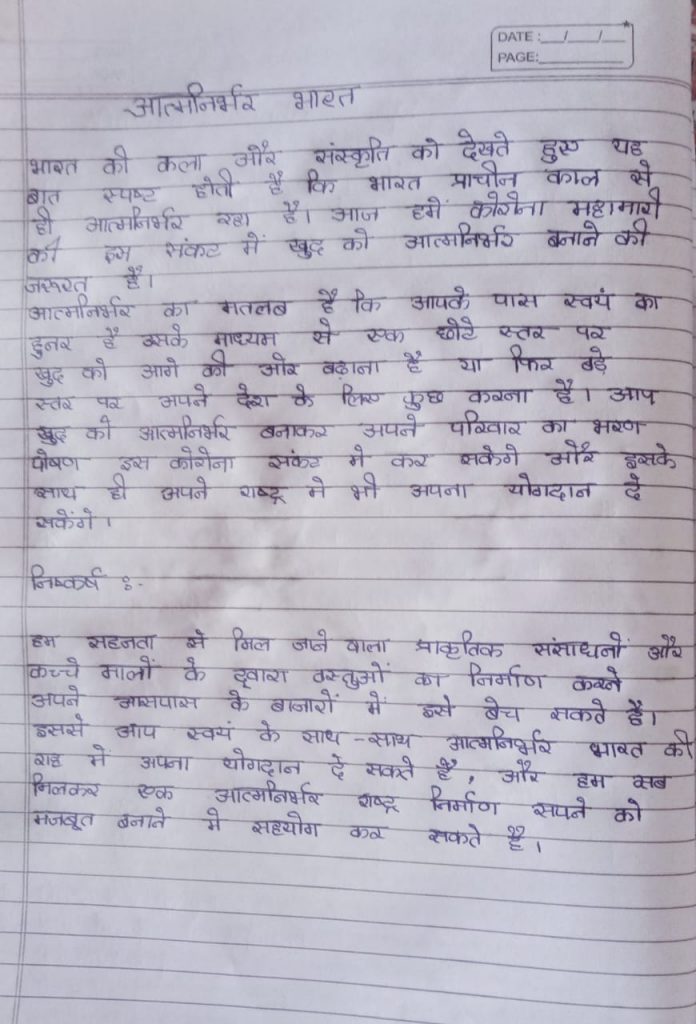 DATE: __/__/__
PAGE: ______
आत्मनिर्भर भारत
भारत की कला और संस्कृति को देखते हुए यह
बात स्पष्ट होती है कि भारत प्राचीन काल से
ही आत्मनिर्भर रहा है। आज हमें कोरोना महामारी
की इस संकट में खुद को आत्मनिर्भर बनाने की
जरूरत है।
आत्मनिर्भर का मतलब है कि आपके पास स्वयं का
हुनर है उसके माध्यम से एक छोटे स्तर पर
खुद को आगे की ओर बढ़ाना है या फिर बड़े
स्तर पर अपने देश के लिए कुछ करना है। आप
खुद को आत्मनिर्भर बनाकर अपने परिवार का भरण
पोषण इस कोरोना संकट मे कर सकेगे और इसके
साथ ही अपने राष्ट्र मे भी अपना योगदान दे
सकेंगे।
निष्कर्ष :-
हम सहजता से मिल जाने वाला प्राकृतिक संसाधनों और
कच्चे मालों के द्वारा वस्तुओं का निर्माण करने
अपने आसपास के बाजारों में इसे बेच सकते है।
इससे आप स्वयं के साथ-साथ आत्मनिर्भर भारत की
राह में अपना योगदान दे सकते है, और हम सब
मिलकर एक आत्मनिर्भर राष्ट्र निर्माण सपने को
मजबूत बनाने मे सहयोग कर सकते है।